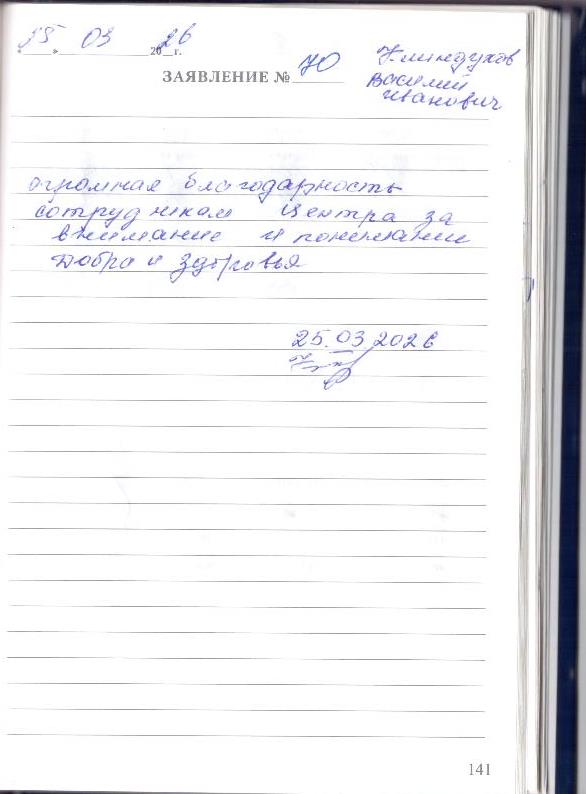 25 03 2026 г.
ЗАЯВЛЕНИЕ № 70
Василий
Иванович
огромная благодарность
сотрудникам центра за
внимание и понимание
Добра и здоровья
25.03.2026
141